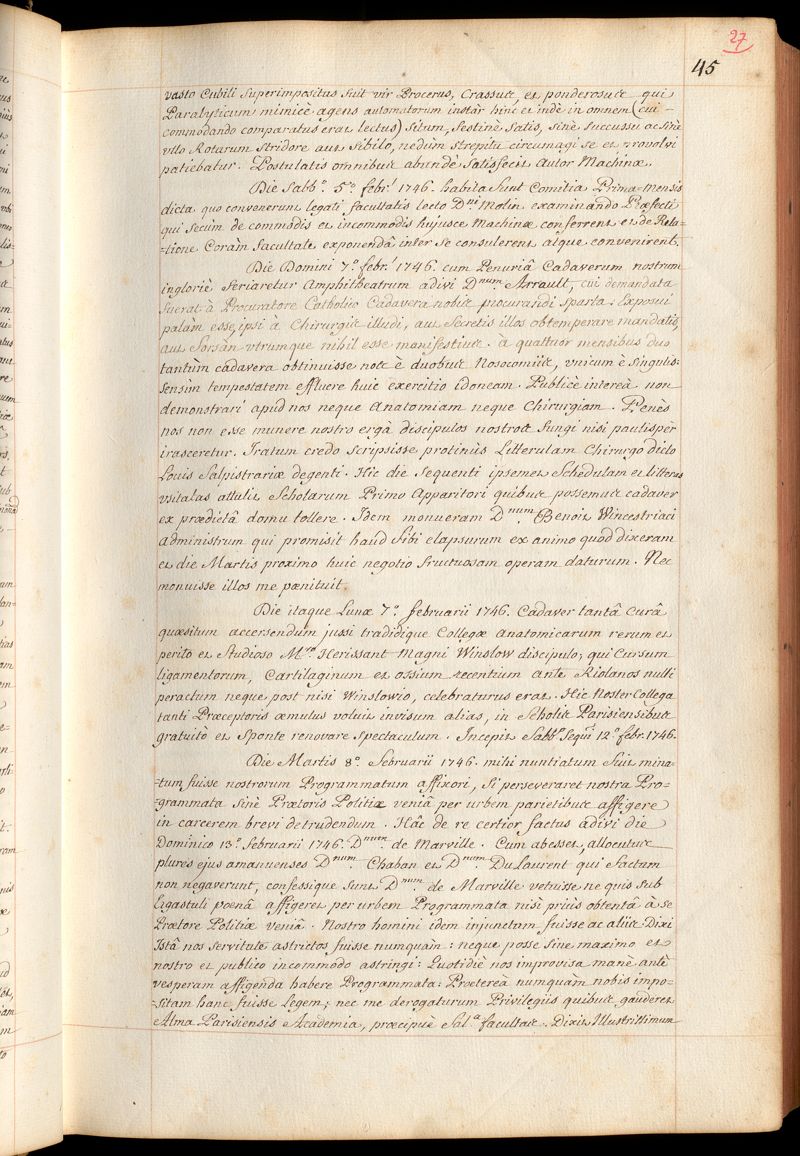 27
45
vasto Cubili Superimpositus fuit vir Procerus, Crassus, et ponderosus qui
Paralyticum mimicè agens automatorum instàr hinc et indè in omnem (cui
commodando comparatus erat lectus) Situm, festinè Satis, sinè succussu ac sinè
ullo Rotarum Stridore aut Sibilo, nedum strepitu circumagi se et provolvi
patiebatur. Postulatis omnibus abundè Satisfecit Autor Machinæ.
Die Sabb.º 5.º febr.i 1746. habita Sunt Comitia Prima-mensis
dicta quo convenerunt legati facultatis lecto D.ni Molin examinando Præfecti
qui Secùm de commodis et incommodis hujusce Machinæ conferrent et de Rela-
-tione Coràm facultate exponendâ inter se consulerent atque convenirent.
Die Domini 7.º febr.i 1746. cum Penuriâ Cadaverum nostrum
ingloriè feriaretur Amphitheatrum adivi D.num Arrault, cui demandata
fuerat à Procuratore Catholico Cadavera nobis procurandi sparta: Exposui
palàm esse, ipsi à Chirurgis illudi, aut Secretis illos obtemperare mandatis,
aut forsàn utrumque nihil esse manifestius. a quattuor mensibus duo
tantùm cadavera obtinuisse nos è duobus Nosocomiis, unicum è Singulis:
Sensìm tempestatem effluere huic exercitio idoneam. Publicè intereà non
demonstrari apud nos neque Anatomiam neque Chirurgiam. Penès
nos non esse munere nostro ergà discipulos nostros fungi nisi paulisper
irasceretur. Iratum credo scripsisse protinùs Litterulam Chirurgo dicto
Louis Salpistrariæ degenti. Hic die Sequenti ipsemet Schedulam et litteras
usitatas attulit Scholarum Primo Apparitori quibus possemus cadaver
ex prædictâ domu tollere. Idem monueram D.num Benoit Wincestriaci
administrum qui promisit haud Sibi elapsurum ex animo quod dixeram
et die Martis proximo huic negotio fructuosam operam daturum. Nec
monuisse illos me pœnituit.
Die itaque Lunæ 7.º februarii 1746. Cadaver tantâ Curâ
quæsitum accersendum jussi tradidique Collegæ Anatomicarum rerum et
perito et Studioso M.ro Herissant Magni Winslow discipulo, qui Cursum
ligamentorum, Cartilaginum et ossium recentium ante Riolanos nulli
peractum neque post nisi Winslowio, celebraturus erat. Hic Noster Collega
tanti Præceptoris æmulus voluit invisum alias, in Scholis Parisiensibus
gratuitò et Sponte renovare Spectaculum. Incepit Sabb.º Sequi 12.º febr. 1746.
Die Martis 8.º februarii 1746. mihi nuntiatum fuit mina-
-tum fuisse nostrorum Programmatum affixori, Si perseveraret nostra Pro-
-grammata Sinè Prætoris Politiæ veniâ per urbem parietibus affigere
in carcerem brevi detrudendum. Hâc de re certior factus adivi die
Dominicâ 13.º februarii 1746. D.num de Marville. Cum abesset, allocutus
plures ejus amanuenses D.num Chaban et D.num DuLaurent qui factum
non negaverunt, confessique Sunt D.num de Marville vetuisse ne quis Sub
Ergastuli pœnâ affigeret per urbem Programmata nisi priùs obtentâ à se
Prætore Politiæ veniâ. Nostro homini idem injunctum fuisse ac aliis. Dixi
Istâ nos Servitute astrictos fuisse numquàm: neque posse sine maximo et
nostro et publico incommodo astringi: Quotidiè nos improvisa manè antè
vesperam affigenda habere Programmata: Prætereà numquàm nobis impo-
-sitam hanc fuisse Legem; nec me derogaturum Privilegiis quibus gauderet
Alma Parisiensis Academia, præcipuè Sal.a facultas. Dixit Illustrissimum